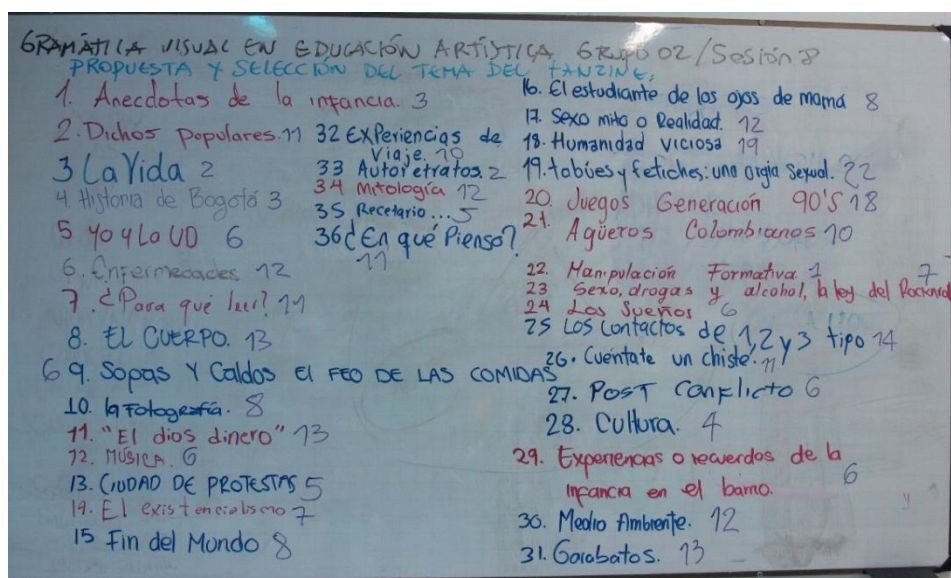 GRAMÁTICA VISUAL EN EDUCACIÓN ARTÍSTICA GRUPO 02/Sesión 8
PROPUESTA Y SELECCIÓN DEL TEMA DEL FANZINE;
1. Anecdotas de la infancia. 3
2. Dichos populares. 11
3 La Vida 2
4. Historia de Bogotá 3
5 yo y La UD 6
6. Enfermedades 12
7. ¿Para qué leer? 11
8. EL CUERPO. 13
6 9. Sopas Y Caldos El FEO DE LAS COMIDAS
10. la Fotografía. 8
11. "El dios dinero" 13
12. MÚSICA. 6
13. CIUDAD DE PROTESTAS 5
14. El existencialismo 7
15 Fin del Mundo 8
32 EXPeriencias de
Viaje. 10
33 Autoretratos. 2
34 Mitología 12
35 Recetario ... 5
36 ¿En qué Pienso?
11
16. El estudiante de los ojos de mamá 8
17. Sexo mito o Realidad. 12
18. Humanidad Viciosa 19
19. tabúes y fetiches: una orgia Sexual. 22
20. Juegos Generación 90'S 18
21. Agüeros Colombianos 10
22. Manipulación Formativa. 1
23 Sexo, drogas y alcohol, la ley del Rockanrol 7
24 Los Sueños 6
25 Los contactos de 1, 2 y 3 tipo 14
26. Cuéntate un chiste. 11
27. POST CONFLICTO 6
28. Cultura. 4
29. Experiencias o recuerdos de la
infancia en el barrio. 6
30. Medio Ambiente. 12
31. Garabatos. 13